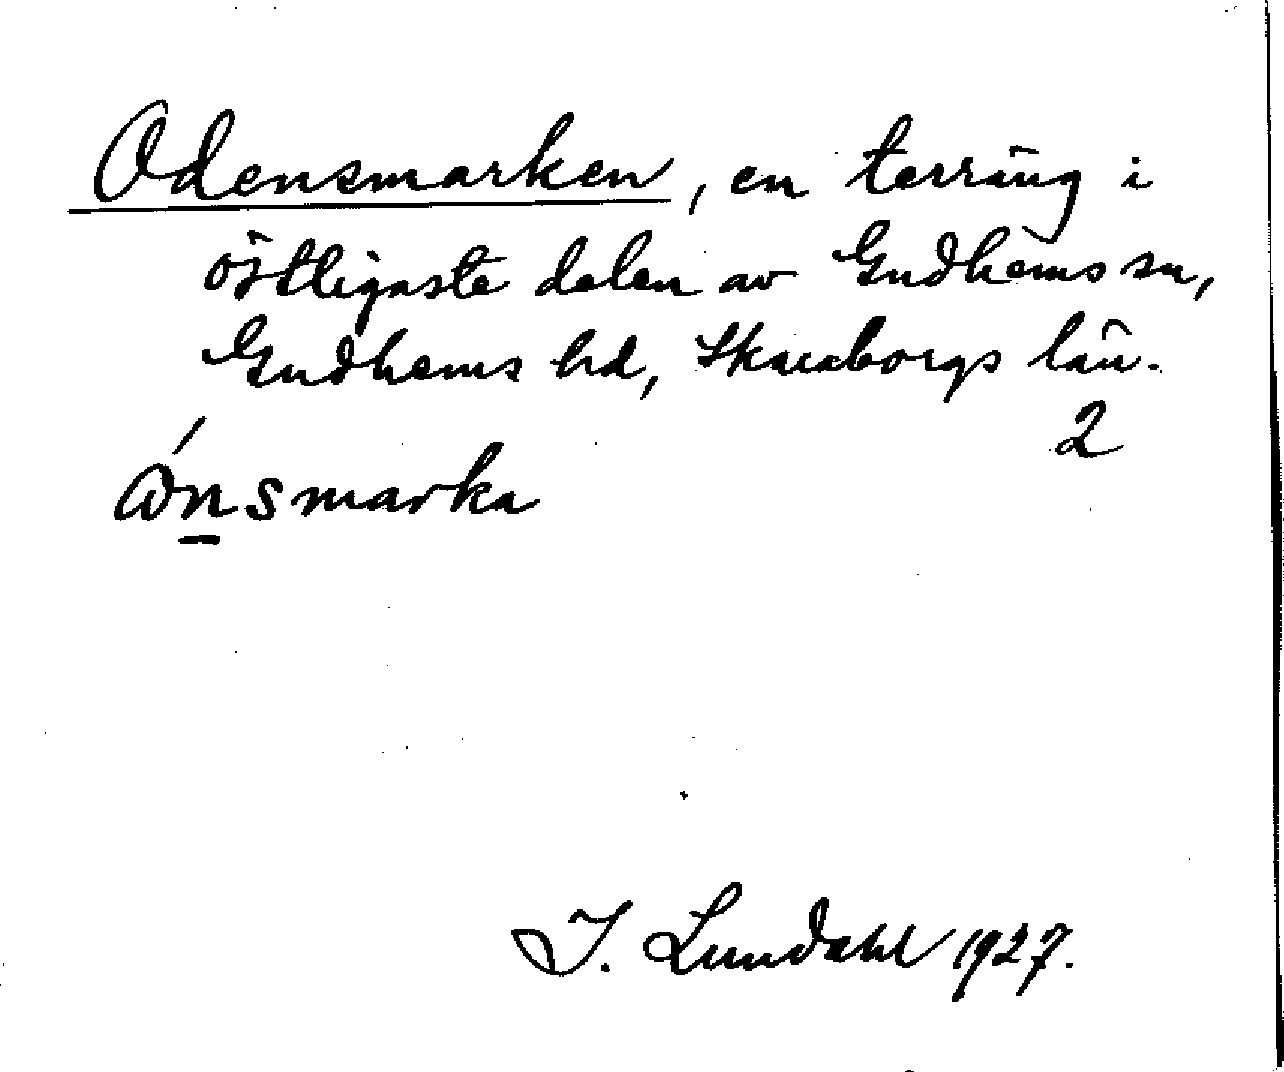 Odensmarken, en terräng i
östligaste delen av Gudhems sn,
Gudhems hd, Skaraborgs län.
2
ꞷ́nsmarka
I. Lundahl 1927.